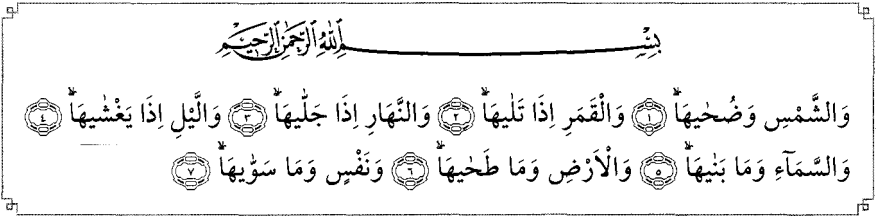 بِسْمِ اللّٰهِ الرَّحْمٰنِ الرَّحِيْمِ
وَالشَّمْسِ وَضُحٰيهَاۙ ﴿١﴾ وَالْقَمَرِ اِذَا تَلٰيهَاۙ ﴿٢﴾ وَالنَّهَارِ اِذَا جَلّٰيهَاۙ ﴿٣﴾ وَالَّيْلِ اِذَا يَغْشٰيهَاۙ ﴿٤﴾
وَالسَّمَآءِ وَمَا بَنٰيهَاۙ ﴿٥﴾ وَالْاَرْضِ وَمَا طَحٰيهَاۙ ﴿٦﴾ وَنَفْسٍ وَمَا سَوّٰيهَاۙ ﴿٧﴾